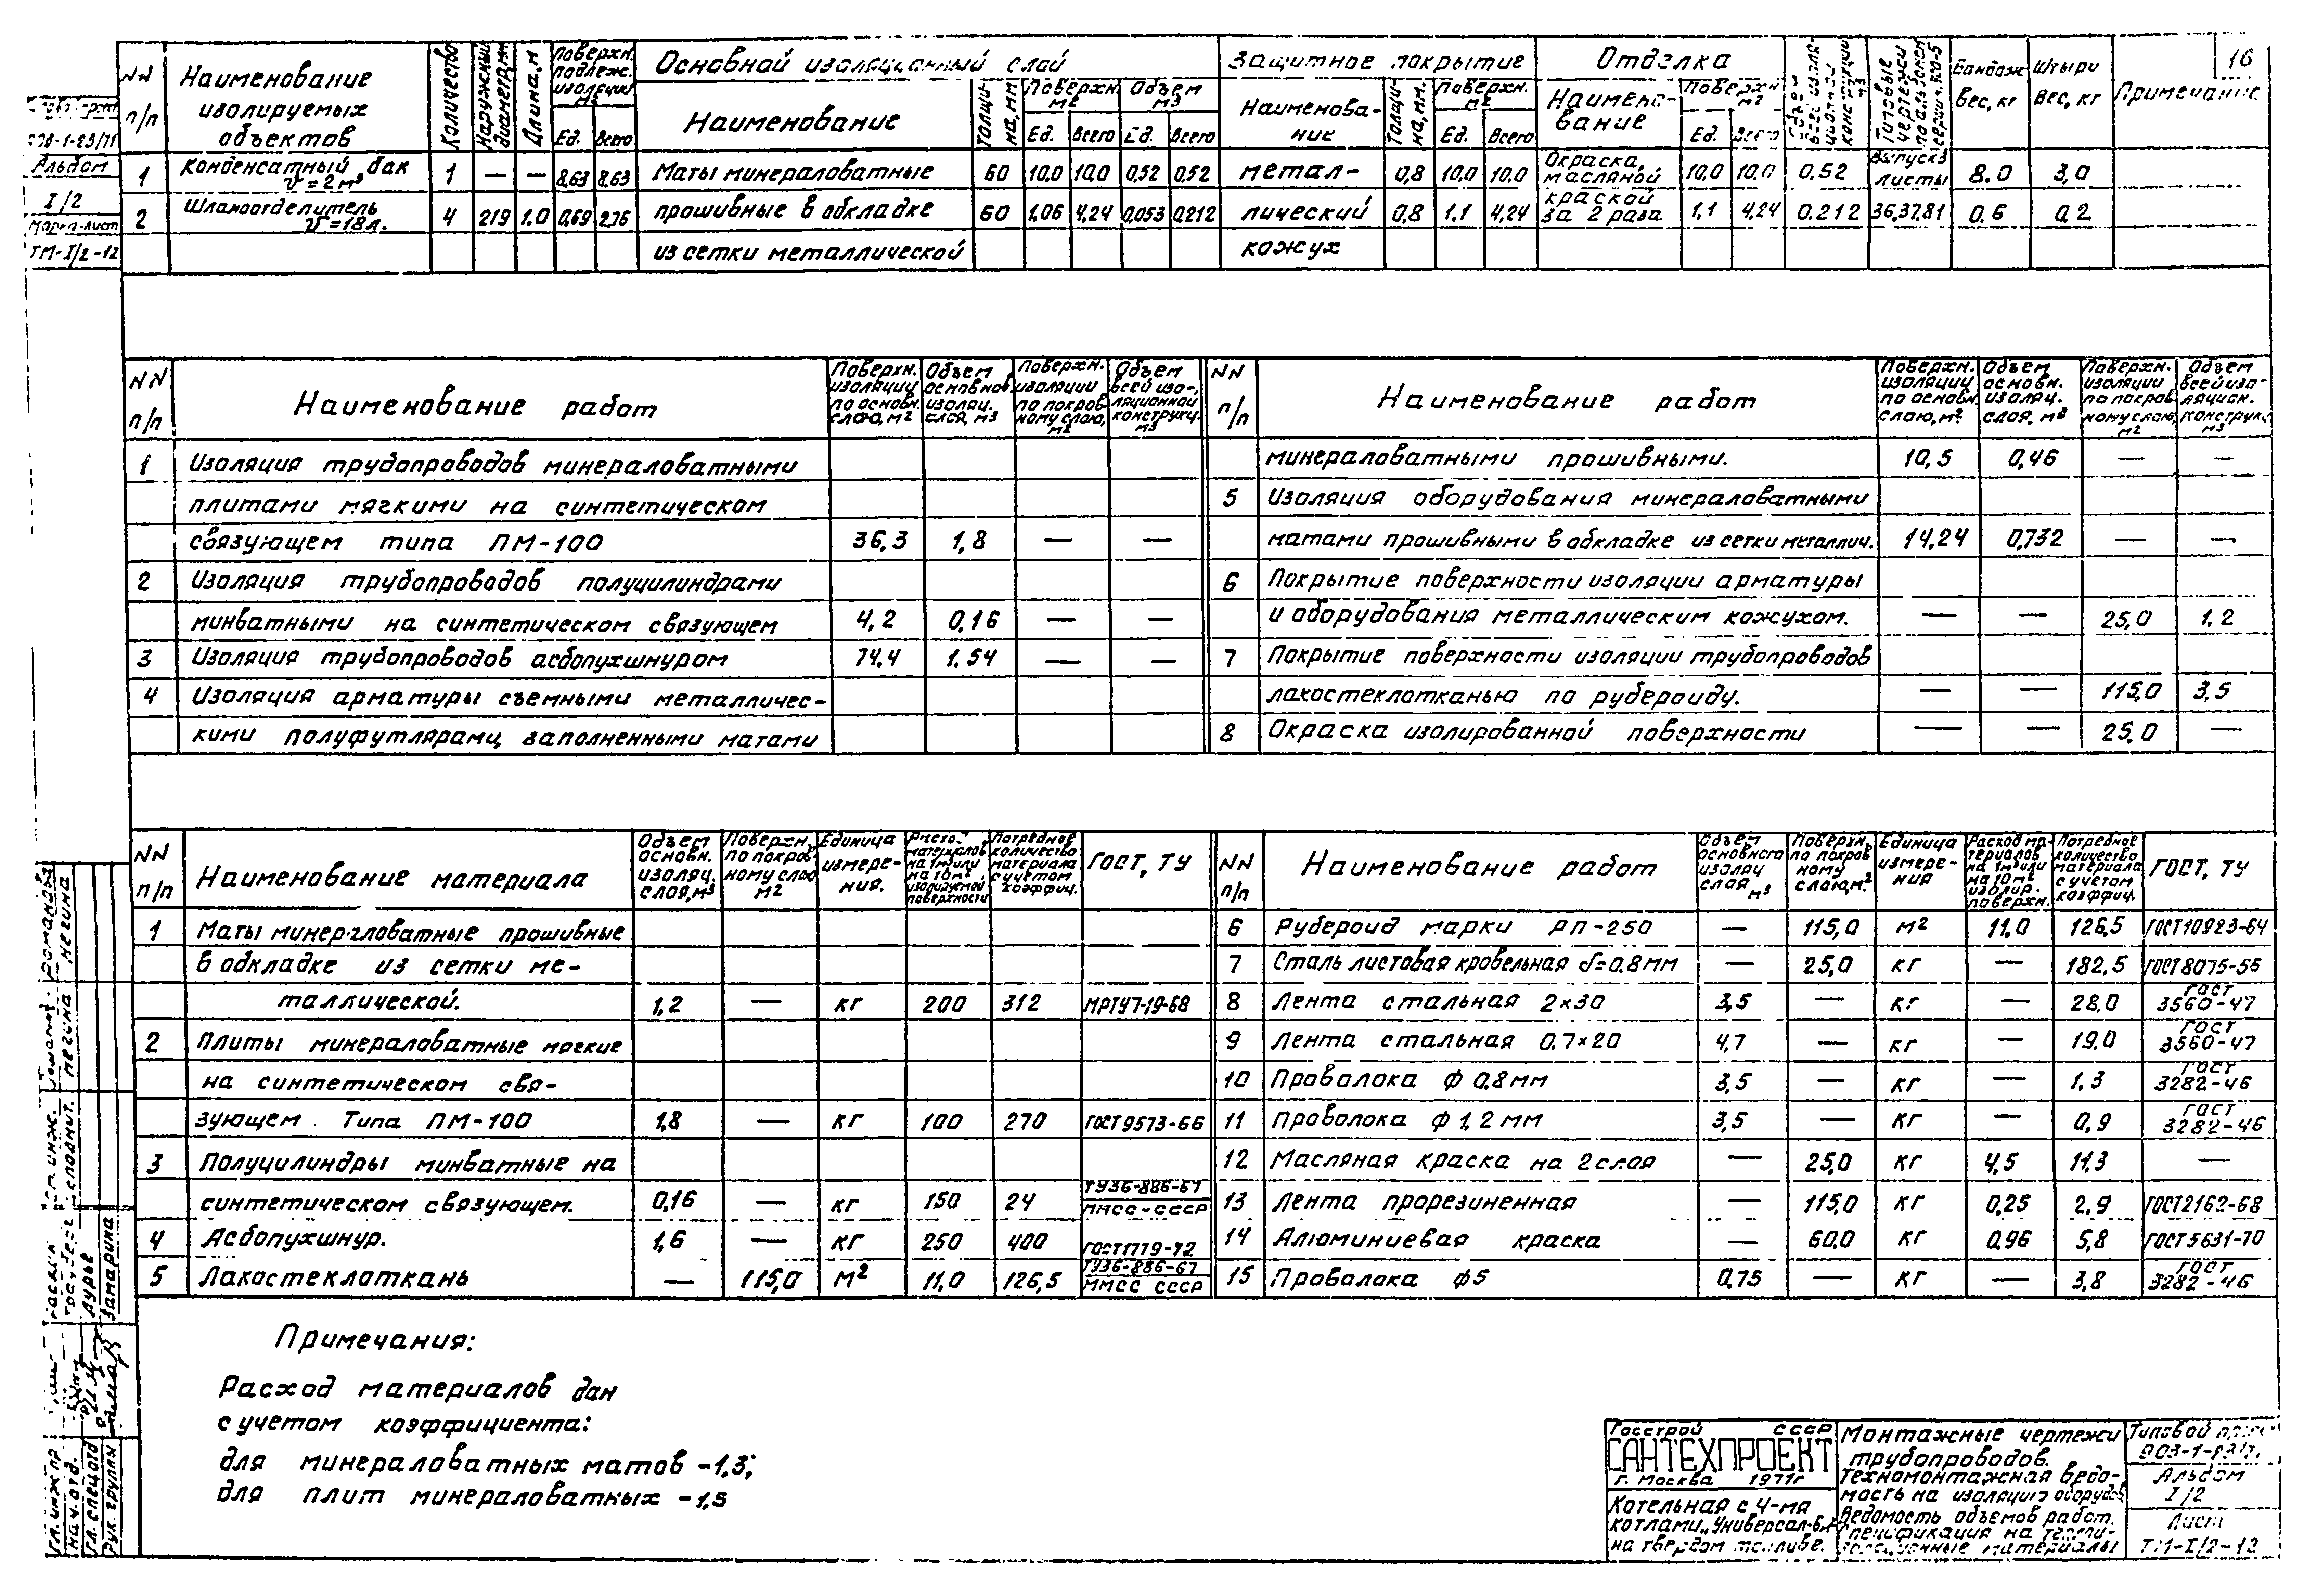 16
NN п/п | Наименование изолируемых объектов | Количество | Наружный диаметр, мм | Длина, м | Поверхн. подлеж. изоляции м² Ед. Всего | Основной изоляционный слой | Защитное покрытие | Отделка | Бандаж Вес, кг | Штыри Вес, кг | Примечание
Наименование | Толщина, мм | Поверхн. м² Ед. Всего | Объем м³ Ед. Всего | Наименование | Толщина, мм. | Поверхн. м² Ед. Всего | Наименование | Поверхн. м² Ед. Всего
1 | Конденсатный бак V=2м³ | 1 | — | — | 8,63 | 8,63 | Маты минераловатные | 60 | 10,0 | 10,0 | 0,52 | 0,52 | метал- | 0,8 | 10,0 | 10,0 | Окраска, масляной | 10,0 | 10,0 | 0,52 | Выпуск 3 листы | 8.0 | 3,0
2 | Шламоотделитель V=18л. | 4 | 219 | 1.0 | 0,69 | 2,76 | прошивные в обкладке | 60 | 1,06 | 4,24 | 0,053 | 0,212 | лический | 0,8 | 1.1 | 4,24 | краской за 2 раза | 1,1 | 4,24 | 0.212 | 36,37,81 | 0.6 | 0.2
из сетки металлической | кожух
Альбом
I/2
Марка-лист
ТМ-I/2-12
NN п/п | Наименование работ | Поверхн. изоляции по основн. слою, м² | Объем основнов. изоляц. слоя, м³ | Поверхн. изоляции по покровному слою, м² | Объем всей изоляционной конструкц. м³
1 | Изоляция трубопроводов минераловатными
плитами мягкими на синтетическом
связующем типа ПМ-100 | 36,3 | 1,8 | — | —
2 | Изоляция трубопроводов полуцилиндрами
минватными на синтетическом связующем | 4,2 | 0,16 | — | —
3 | Изоляция трубопроводов асбопухшнуром | 74,4 | 1.54 | — | —
4 | Изоляция арматуры съемными металличес-
кими полуфутлярами, заполненными матами
NN п/п | Наименование работ | Поверхн. изоляции по основн. слою, м² | Объем основн. изоляц. слоя, м³ | Поверхн. изоляции по покровному слою, м² | Объем всей изоляцион. конструкц. м³
минераловатными прошивными. | 10,5 | 0,46 | — | —
5 | Изоляция оборудования минераловатными
матами прошивными в обкладке из сетки металлич. | 14,24 | 0,732 | — | —
6 | Покрытие поверхности изоляции арматуры
и оборудования металлическим кожухом. | — | — | 25,0 | 1.2
7 | Покрытие поверхности изоляции трубопроводов
лакостеклотканью по рубероиду. | — | — | 115,0 | 3,5
8 | Окраска изолированной поверхности | — | — | 25.0 | —
NN п/п | Наименование материала | Объем основн. изоляц. слоя, м³ | Поверхн. по покровному слою м² | Единица измерения. | Расход материалов на 1м³ или на 10м² изолируемой поверхности | Потребное количество материала с учетом коэффиц. | ГОСТ, ТУ
1 | Маты минераловатные прошивные
в обкладке из сетки ме-
таллической. | 1,2 | — | кг | 200 | 312 | МРТУ7-19-68
2 | Плиты минераловатные мягкие
на синтетическом свя-
зующем. Типа ПМ-100 | 1,8 | — | кг | 100 | 270 | ГОСТ9573-66
3 | Полуцилиндры минватные на
синтетическом связующем. | 0,16 | — | кг | 150 | 24 | ТУ36-886-67 ММСС-СССР
4 | Асбопухшнур. | 1,6 | — | кг | 250 | 400 | ГОСТ1779-72
5 | Лакостеклоткань | — | 115,0 | м² | 11,0 | 126,5 | ТУ36-886-67 ММСС СССР
NN п/п | Наименование работ | Объем основного изоляц слоя, м³ | Поверхн. по покровному слою, м². | Единица измерения | Расход материалов на 1м³ или на 10м² изолир. поверхн. | Потребное количество материала с учетом коэффиц. | ГОСТ, ТУ
6 | Рубероид марки РП-250 | — | 115,0 | м² | 11,0 | 126,5 | ГОСТ10923-64
7 | Сталь листовая кровельная δ=0.8мм | — | 25,0 | кг | — | 182,5 | ГОСТ8075-56
8 | Лента стальная 2×30 | 3,5 | — | кг | — | 28,0 | ГОСТ 3560-47
9 | Лента стальная 0.7×20 | 4,7 | — | кг | — | 19.0 | ГОСТ 3560-47
10 | Проволока ф 0,8мм | 3,5 | — | кг | — | 1,3 | ГОСТ 3282-46
11 | Проволока ф 1,2мм | 3,5 | — | кг | — | 0,9 | ГОСТ 3282-46
12 | Масляная краска на 2 слоя | — | 25,0 | кг | 4,5 | 11,3 | —
13 | Лента прорезиненная | — | 115,0 | кг | 0,25 | 2,9 | ГОСТ2162-68
14 | Алюминиевая краска | — | 60,0 | кг | 0,96 | 5,8 | ГОСТ5631-70
15 | Проволока ф5 | 0,75 | — | кг | — | 3,8 | ГОСТ 3282-46
Примечания:
Расход материалов дан
с учетом коэффициента:
для минераловатных матов -1,3;
для плит минераловатных -1,5
Госстрой СССР
САНТЕХПРОЕКТ
г. Москва 1971г
Котельная с 4-мя
котлами „Универсал-6"
на твердом топливе.
Монтажные чертежи
трубопроводов.
Техномонтажная ведо-
мость на изоляцию оборудов.
Ведомость объемов работ.
Спецификация на теплоизоляционные материалы
Типовой проект
Альбом
I/2
Лист
ТМ-I/2-12
Гл. инж. пр
Нач. отд.
Гл. спец. отд
Рук. группы
Лурье